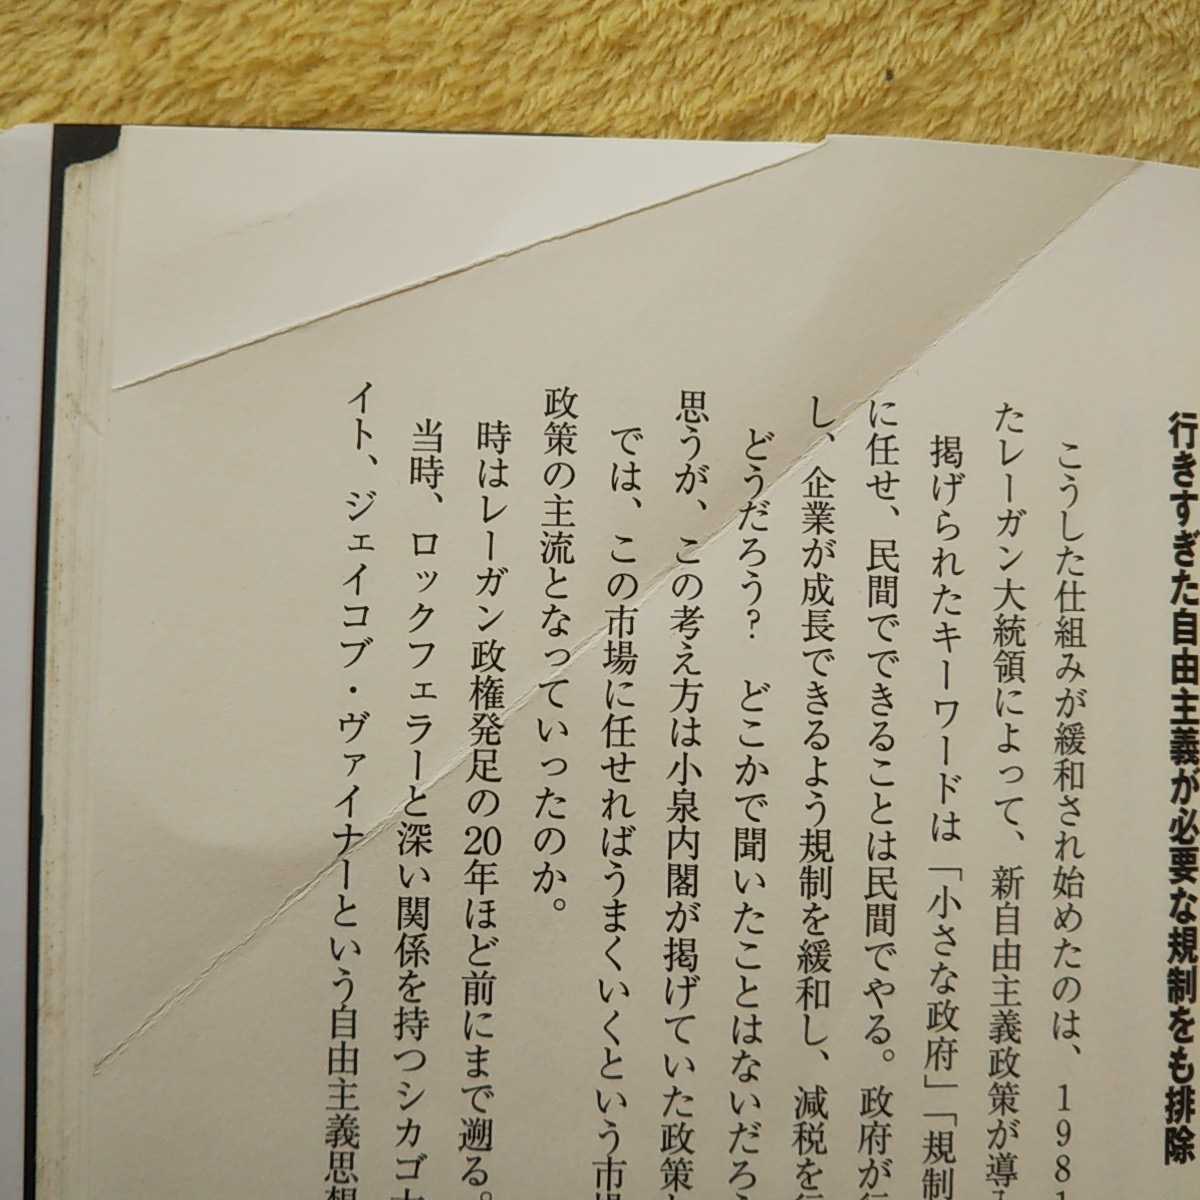 行きすぎた自由主義が必要な規制をも排除
こうした仕組みが緩和され始めたのは、1981
たレーガン大統領によって、新自由主義政策が導入
掲げられたキーワードは「小さな政府」「規制
に任せ、民間でできることは民間でやる。政府が行
し、企業が成長できるよう規制を緩和し、減税を行
どうだろう？　どこかで聞いたことはないだろう
思うが、この考え方は小泉内閣が掲げていた政策
では、この市場に任せればうまくいくという市場
政策の主流となっていったのか。
時はレーガン政権発足の20年ほど前にまで遡る。
当時、ロックフェラーと深い関係を持つシカゴ大
イト、ジェイコブ・ヴァイナーという自由主義思想